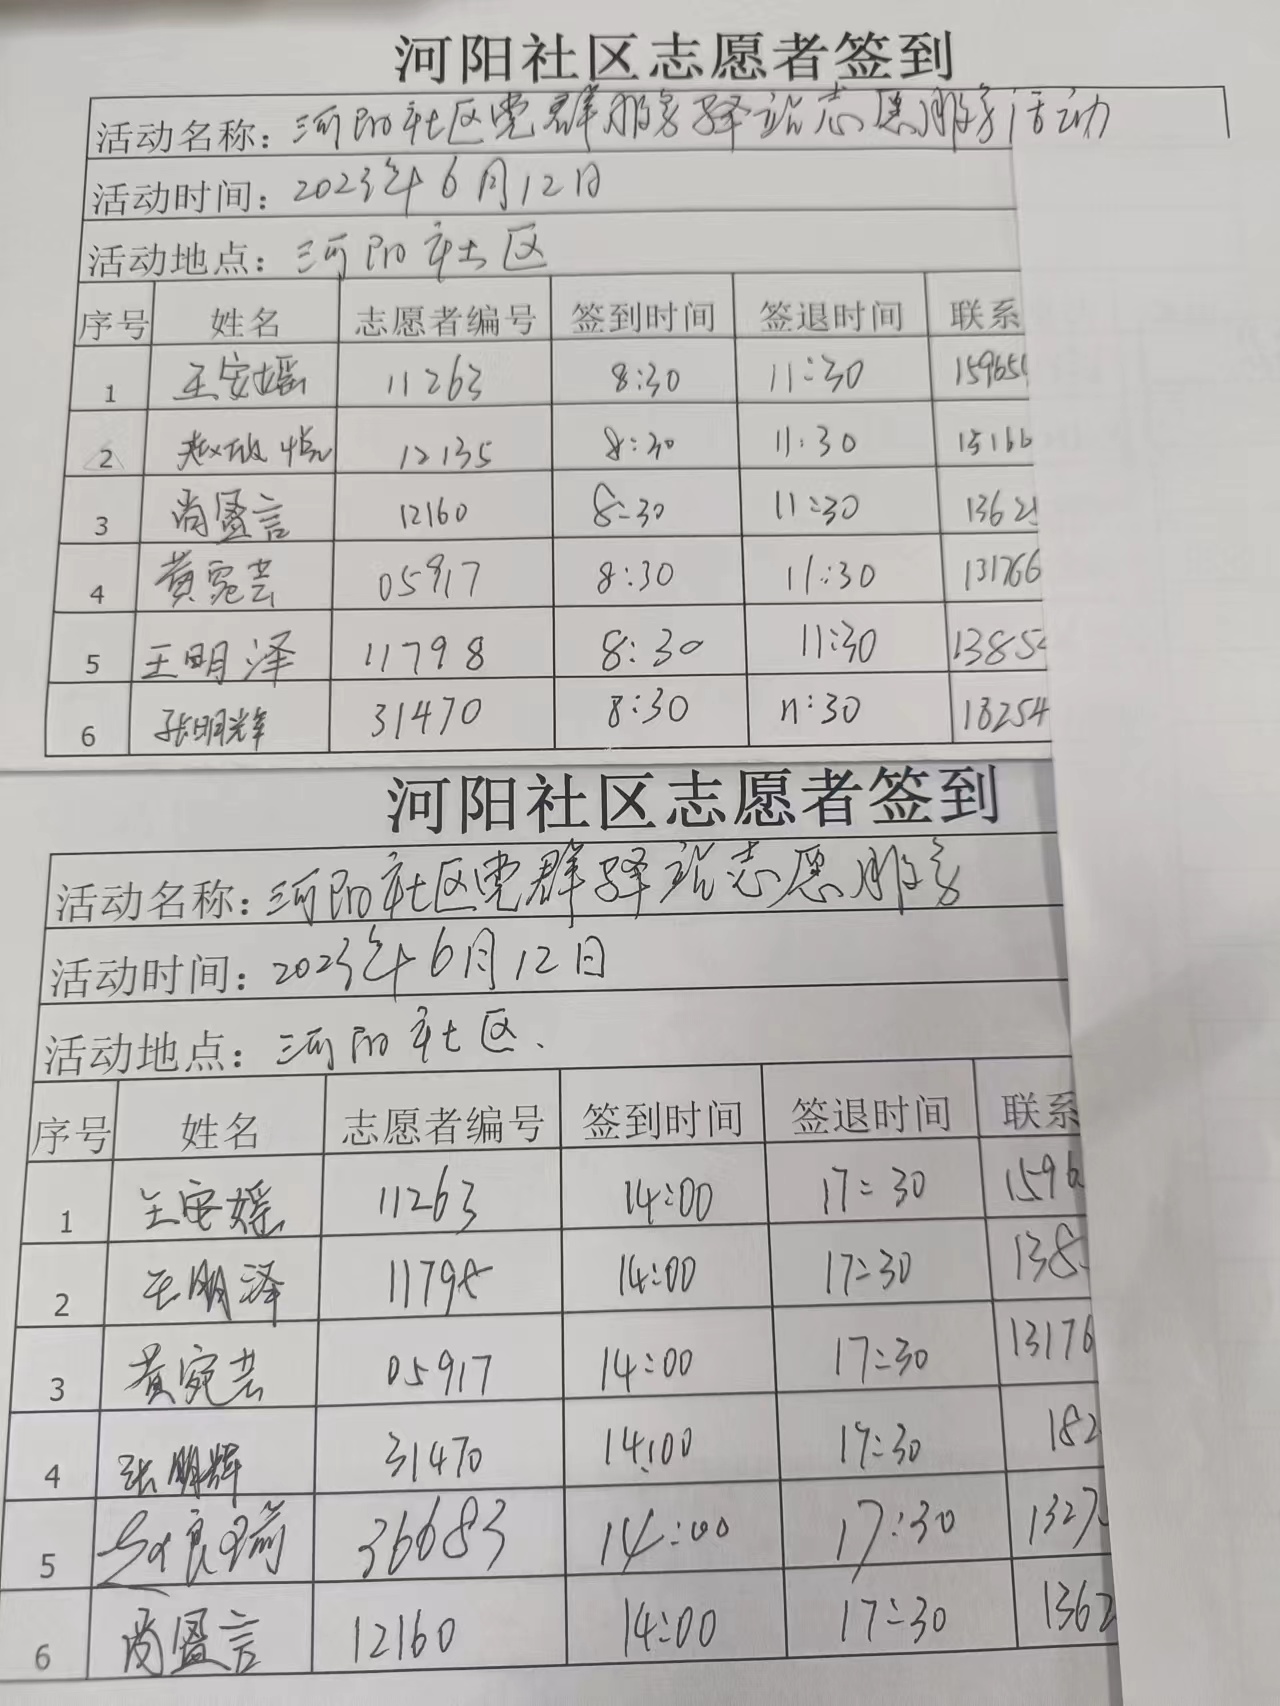 河阳社区志愿者签到
活动名称：河阳社区党群服务驿站志愿服务活动
活动时间：2023年6月12日
活动地点：河阳社区
序号 姓名 志愿者编号 签到时间 签退时间 联系
1 王安媱 11263 8:30 11:30 15965
2 赵 悦 12135 8:30 11:30 15166
3 尚盈言 12160 8:30 11:30 1362
4 黄宛芸 05917 8:30 11:30 131766
5 王明泽 11798 8:30 11:30 1385
6 张明辉 31470 8:30 11:30 18254
河阳社区志愿者签到
活动名称：河阳社区党群驿站志愿服务
活动时间：2023年6月12日
活动地点：河阳社区.
序号 姓名 志愿者编号 签到时间 签退时间 联系
1 王安媱 11263 14:00 17:30 1596
2 王明泽 11798 14:00 17:30 138
3 黄宛芸 05917 14:00 17:30 13176
4 张明辉 31470 14:00 17:30 182
5 赵良瑜 36683 14:00 17:30 1327
6 尚盈言 12160 14:00 17:30 1362